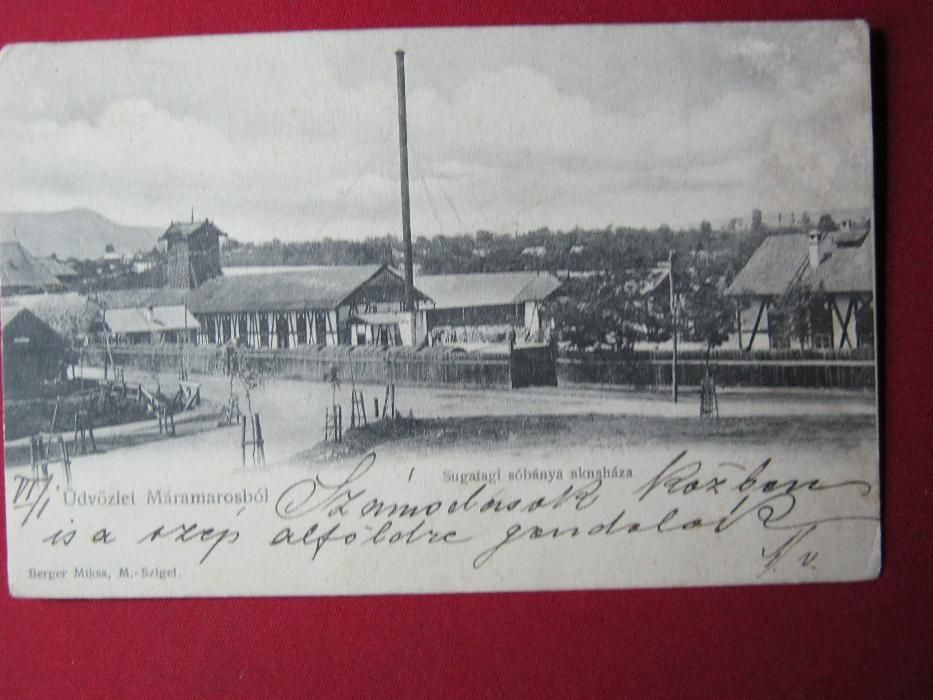 Sugatagi sóbánya aknaháza
VI/1 Üdvözlet Máramarosból Számadások közben
is a szép alföldre gondolok
Berger Miksa, M.-Sziget.